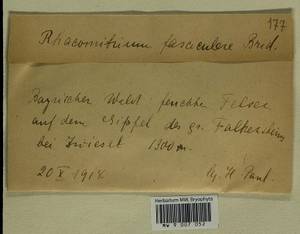 177
Rhacomitrium fasciculare Brid.
Bayrischer Wald: feuchte Felsen
auf dem Gipfel des gr. Falkensteins
bei Zwiesel 1300 m.
20 X 1904 H. Paul.
Herbarium MW, Bryophyta
MW 9 007 052